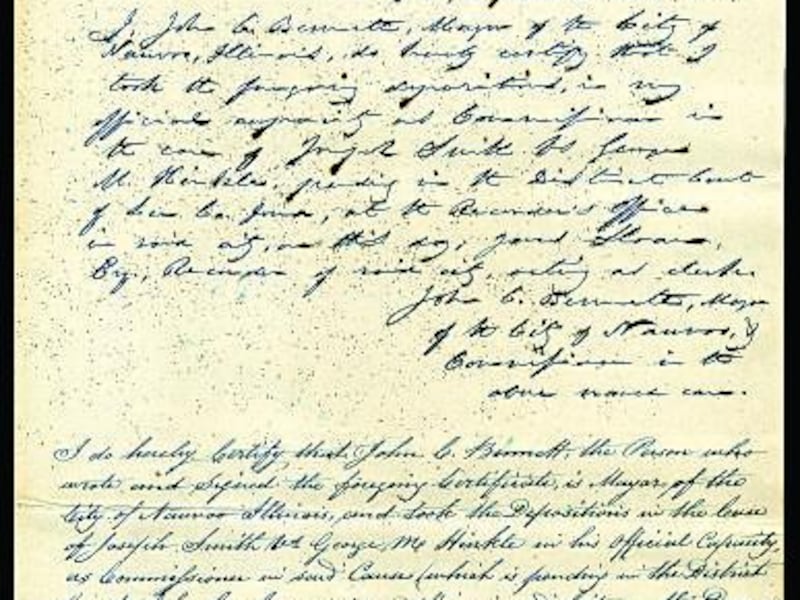 I, John C. Bennett, Mayor of the City of
Nauvoo, Illinois, do hereby certify that I
took the foregoing depositions, in my
official capacity as Commissioner in
the case of Joseph Smith vs George
M. Hinkle, pending in the District Court
of Lee Co. Iowa, at the Recorder's Office
in said city, on this day, James Sloan,
Esq., Recorder of said city, acting as clerk.
John C. Bennett, Mayor
of the City of Nauvoo, &
Commissioner in the
above named case.
I do hereby Certify that John C. Bennett, the Person who
wrote and signed the foregoing Certificate, is Mayor of the
City of Nauvoo Illinois, and took the Depositions in the Case
of Joseph Smith vs George M. Hinkle in his Official Capacity,
as Commissioner in said Cause (which is pending in the District